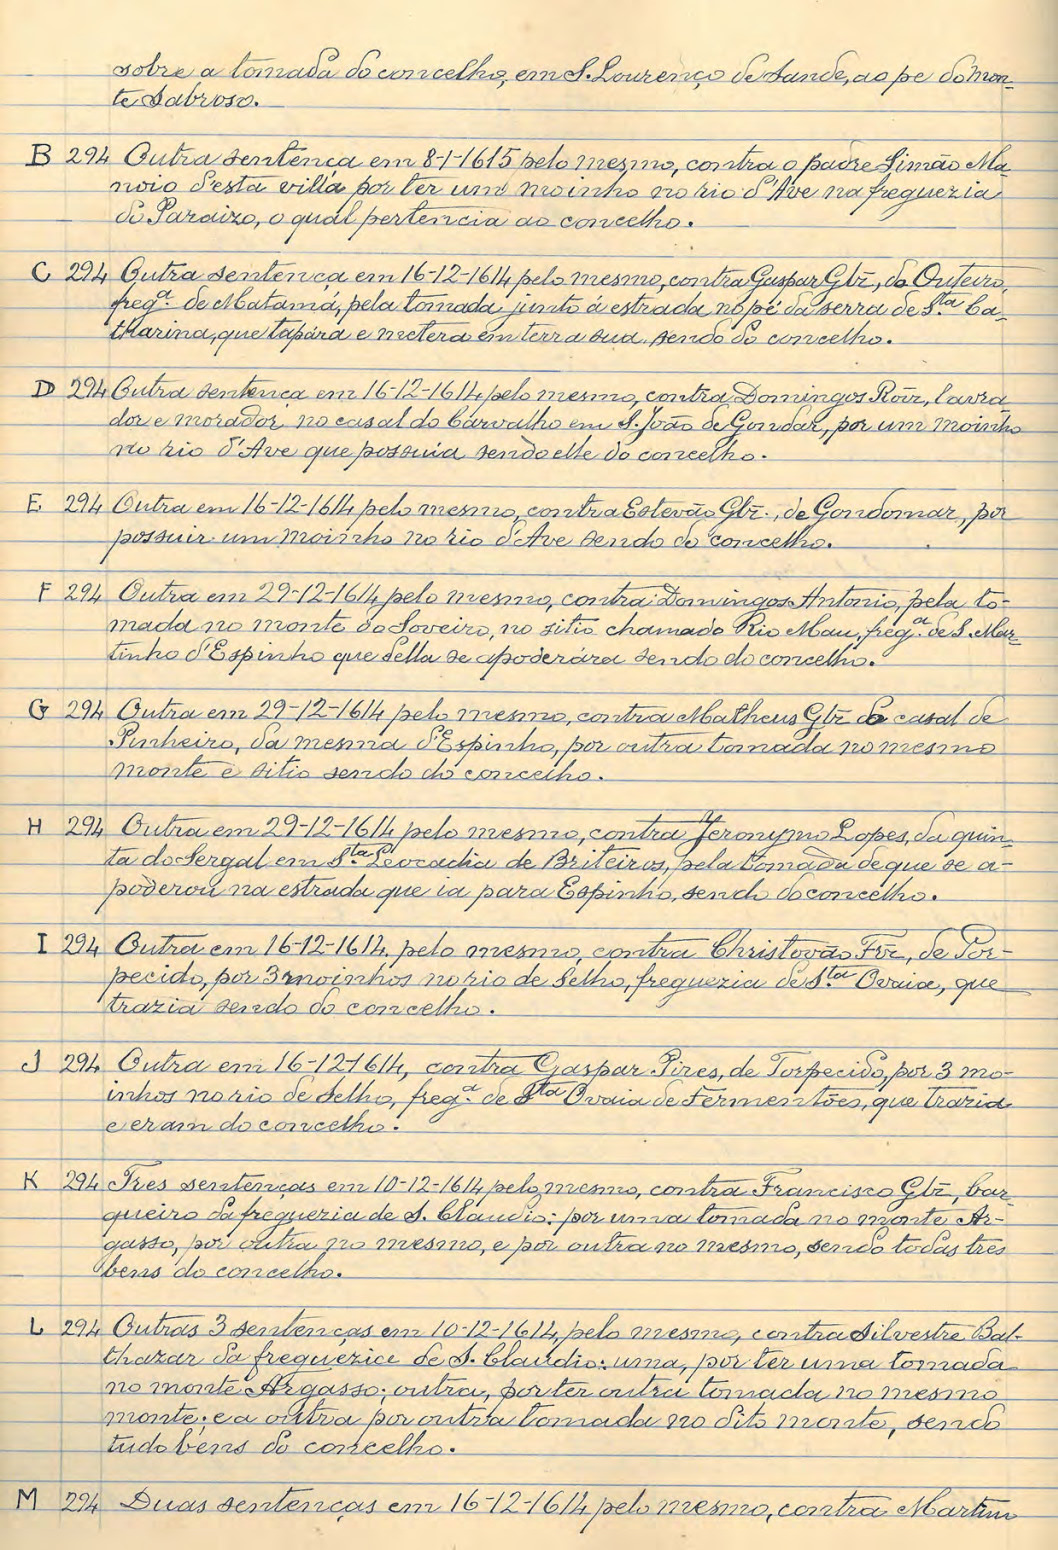 sobre a tomada do concelho, em S. Lourenço de Sande, ao pe do Mon-
te Sabroso.
B 294 Outra sentença em 8-1-1615 pelo mesmo, contra o padre Simão Ma-
noio d'esta villa por ter um moinho no rio d'Ave na freguezia
do Paraizo, o qual pertencia ao concelho.
C 294 Outra sentença em 16-12-1614 pelo mesmo, contra Gaspar Glz̃, do Outeiro,
freg.ª de Matamá, pela tomada junto á estrada no pé da serra de S.ta Ca-
tharina, que tapára e metera em terra sua, sendo do concelho.
D 294 Outra sentença em 16-12-1614 pelo mesmo, contra Domingos Roiz, lavra
dor e morador no casal do Carvalho em S. João de Gondar, por um moinho
no rio d'Ave que possuia sendo elle do concelho.
E 294 Outra em 16-12-1614 pelo mesmo, contra Estevão Glz̃., de Gondomar, por
possuir um moinho no rio d'Ave sendo do concelho.
F 294 Outra em 29-12-1614 pelo mesmo, contra Domingos Antonio, pela to-
mada no monte do Soveiro, no sitio chamado Rio Mau, freg.ª de S. Mar-
tinho d'Espinho que della se apoderára sendo do concelho.
G 294 Outra em 29-12-1614 pelo mesmo, contra Matheus Glz̃ do casal de
Pinheiro, da mesma d'Espinho, por outra tomada no mesmo
monte e sitio sendo do concelho.
H 294 Outra em 29-12-1614 pelo mesmo, contra Jeronymo Lopes, da quin-
ta do Sergal em S.ta Leocadia de Briteiros, pela tomada de que se a-
poderou na estrada que ia para Espinho, sendo do concelho.
I 294 Outra em 16-12-1614, pelo mesmo, contra Christovão Frz̃, de Tor-
pecido, por 3 moinhos no rio de Selho, freguezia de S.ta Ovaia, que
trazia sendo do concelho.
J 294 Outra em 16-12-1614, contra Gaspar Pires, de Torpecido, por 3 mo-
inhos no rio de Selho, freg.ª de S.ta Ovaia de Fermentões, que trazia
e eram do concelho.
K 294 Tres sentenças em 10-12-1614 pelo mesmo, contra Francisco Glz̃, bar-
queiro da freguezia de S. Claudio: por uma tomada no monte Ar-
gasso, por outra no mesmo, e por outra no mesmo, sendo todas tres
bens do concelho.
L 294 Outras 3 sentenças em 10-12-1614, pelo mesmo, contra Silvestre Bal-
thazar da freguezice de S. Claudio: uma, por ter uma tomada
no monte Argasso; outra, por ter outra tomada no mesmo
monte; e a outra por outra tomada no dito monte, sendo
tudo bens do concelho.
M 294 Duas sentenças em 16-12-1614 pelo mesmo, contra Martim